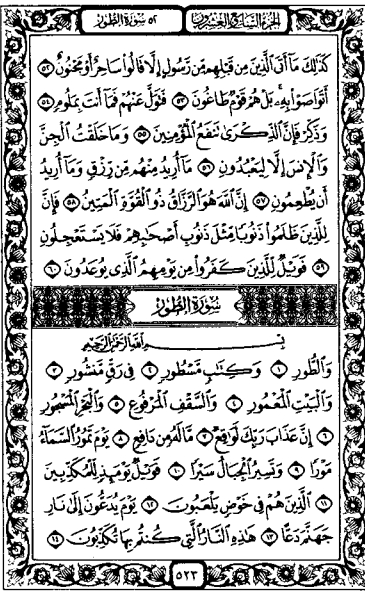 الجزء السابع والعشرون
٥٢ سورة الطور
كَذَٰلِكَ مَآ أَتَى ٱلَّذِينَ مِن قَبْلِهِم مِّن رَّسُولٍ إِلَّا قَالُوا۟ سَاحِرٌ أَوْ مَجْنُونٌ ٥٢
أَتَوَاصَوْا۟ بِهِۦ بَلْ هُمْ قَوْمٌ طَاغُونَ ٥٣ فَتَوَلَّ عَنْهُمْ فَمَآ أَنتَ بِمَلُومٍ ٥٤
وَذَكِّرْ فَإِنَّ ٱلذِّكْرَىٰ تَنفَعُ ٱلْمُؤْمِنِينَ ٥٥ وَمَا خَلَقْتُ ٱلْجِنَّ
وَٱلْإِنسَ إِلَّا لِيَعْبُدُونِ ٥٦ مَآ أُرِيدُ مِنْهُم مِّن رِّزْقٍ وَمَآ أُرِيدُ
أَن يُطْعِمُونِ ٥٧ إِنَّ ٱللَّهَ هُوَ ٱلرَّزَّاقُ ذُو ٱلْقُوَّةِ ٱلْمَتِينُ ٥٨ فَإِنَّ
لِلَّذِينَ ظَلَمُوا۟ ذَنُوبًا مِّثْلَ ذَنُوبِ أَصْحَٰبِهِمْ فَلَا يَسْتَعْجِلُونِ
٥٩ فَوَيْلٌ لِّلَّذِينَ كَفَرُوا۟ مِن يَوْمِهِمُ ٱلَّذِى يُوعَدُونَ ٦٠
سورة الطور
بِسْمِ ٱللَّهِ ٱلرَّحْمَٰنِ ٱلرَّحِيمِ
وَٱلطُّورِ ١ وَكِتَٰبٍ مَّسْطُورٍ ٢ فِى رَقٍّ مَّنشُورٍ ٣
وَٱلْبَيْتِ ٱلْمَعْمُورِ ٤ وَٱلسَّقْفِ ٱلْمَرْفُوعِ ٥ وَٱلْبَحْرِ ٱلْمَسْجُورِ
٦ إِنَّ عَذَابَ رَبِّكَ لَوَٰقِعٌ ٧ مَّا لَهُۥ مِن دَافِعٍ ٨ يَوْمَ تَمُورُ ٱلسَّمَآءُ
مَوْرًا ٩ وَتَسِيرُ ٱلْجِبَالُ سَيْرًا ١٠ فَوَيْلٌ يَوْمَئِذٍ لِّلْمُكَذِّبِينَ
١١ ٱلَّذِينَ هُمْ فِى خَوْضٍ يَلْعَبُونَ ١٢ يَوْمَ يُدَعُّونَ إِلَىٰ نَارِ
جَهَنَّمَ دَعًّا ١٣ هَٰذِهِ ٱلنَّارُ ٱلَّتِى كُنتُم بِهَا تُكَذِّبُونَ ١٤
٥٢٣